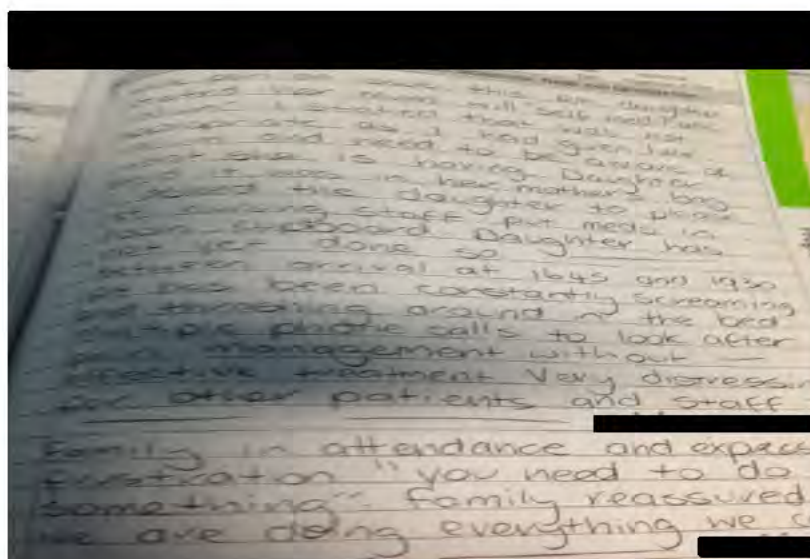 this pt daughter
self med
I explained that was not
as I had given her
and need to be aware of
what she is having Daughter
said it was in her mothers bag
the daughter to please
let nursing staff put meds in
Daughter has
not yet done so
Between arrival at 1645 and 1930
pt has been constantly screaming
and thrashing around in the bed
multiple phone calls to look after
pain management without —
effective treatment Very distressi
for other patients and staff
Family in attendance and expres
frustration "you need to do
something" Family reassured
we are doing everything we c